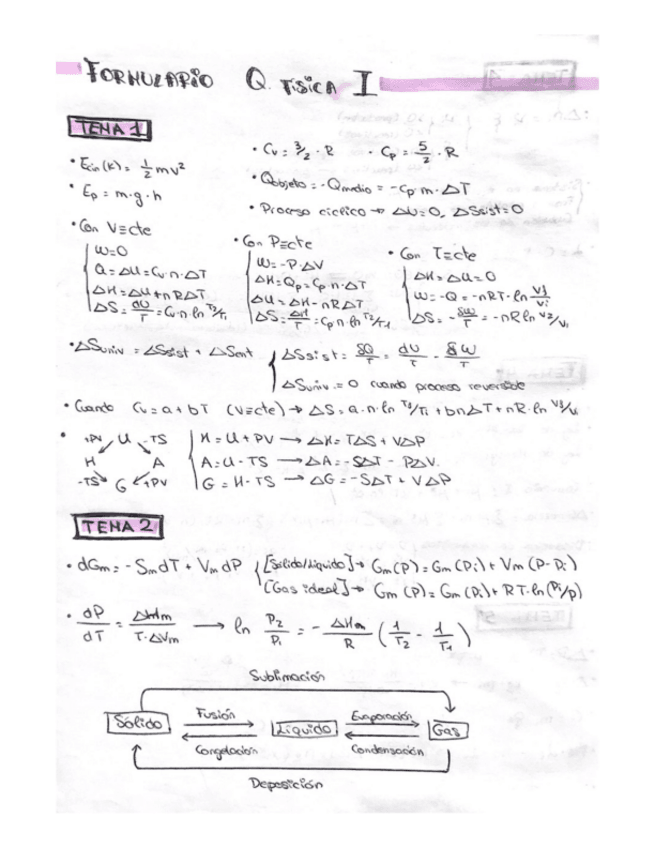 FORMULARIO Q. FÍSICA I
TEMA 1
• Ecin (K) = 1/2 mv²
• Ep = m·g·h
• Cv = 3/2 · R • Cp = 5/2 · R
• Qobjeto = - Qmedio = - Cp · m · ΔT
• Proceso cíclico → ΔU = 0, ΔSsist = 0
• Con V≡cte
W=0
Q = ΔU = Cv·n·ΔT
ΔH = ΔU + nRΔT
ΔS = dU/T = Cv·n·ln T2/T1
• Con P≡cte
W = -P·ΔV
ΔH = Qp = Cp·n·ΔT
ΔU = ΔH - nRΔT
ΔS = ΔH/T = Cp·n·ln T2/T1
• Con T≡cte
ΔH = ΔU = 0
W = -Q = -nRT·ln Vf/Vi
ΔS = - δW/T = -nR ln V2/V1
• ΔSuniv = ΔSsist + ΔSent
ΔSsist = δQ/T = dU/T - δW/T
ΔSuniv = 0 cuando proceso reversible
• Cuando Cv = a + bT (V≡cte) → ΔS = a·n·ln Tf/Ti + bnΔT + nR·ln Vf/Vi
• +PV U -TS
H A
-TS G +PV
H = U + PV → ΔH = TΔS + VΔP
A = U - TS → ΔA = -SΔT - PΔV.
G = H - TS → ΔG = -SΔT + VΔP
TEMA 2
• dGm = - Sm dT + Vm dP
[Sólido/Líquido] → Gm (P) = Gm (Pi) + Vm (P - Pi)
[Gas ideal] → Gm (P) = Gm (Pi) + RT·ln (Pi/P)
• dP/dT = ΔHm/T·ΔVm → ln P2/P1 = - ΔHm/R (1/T2 - 1/T1)
Sublimación
Sólido Fusión Líquido Evaporación Gas
Congelación Condensación
Deposición